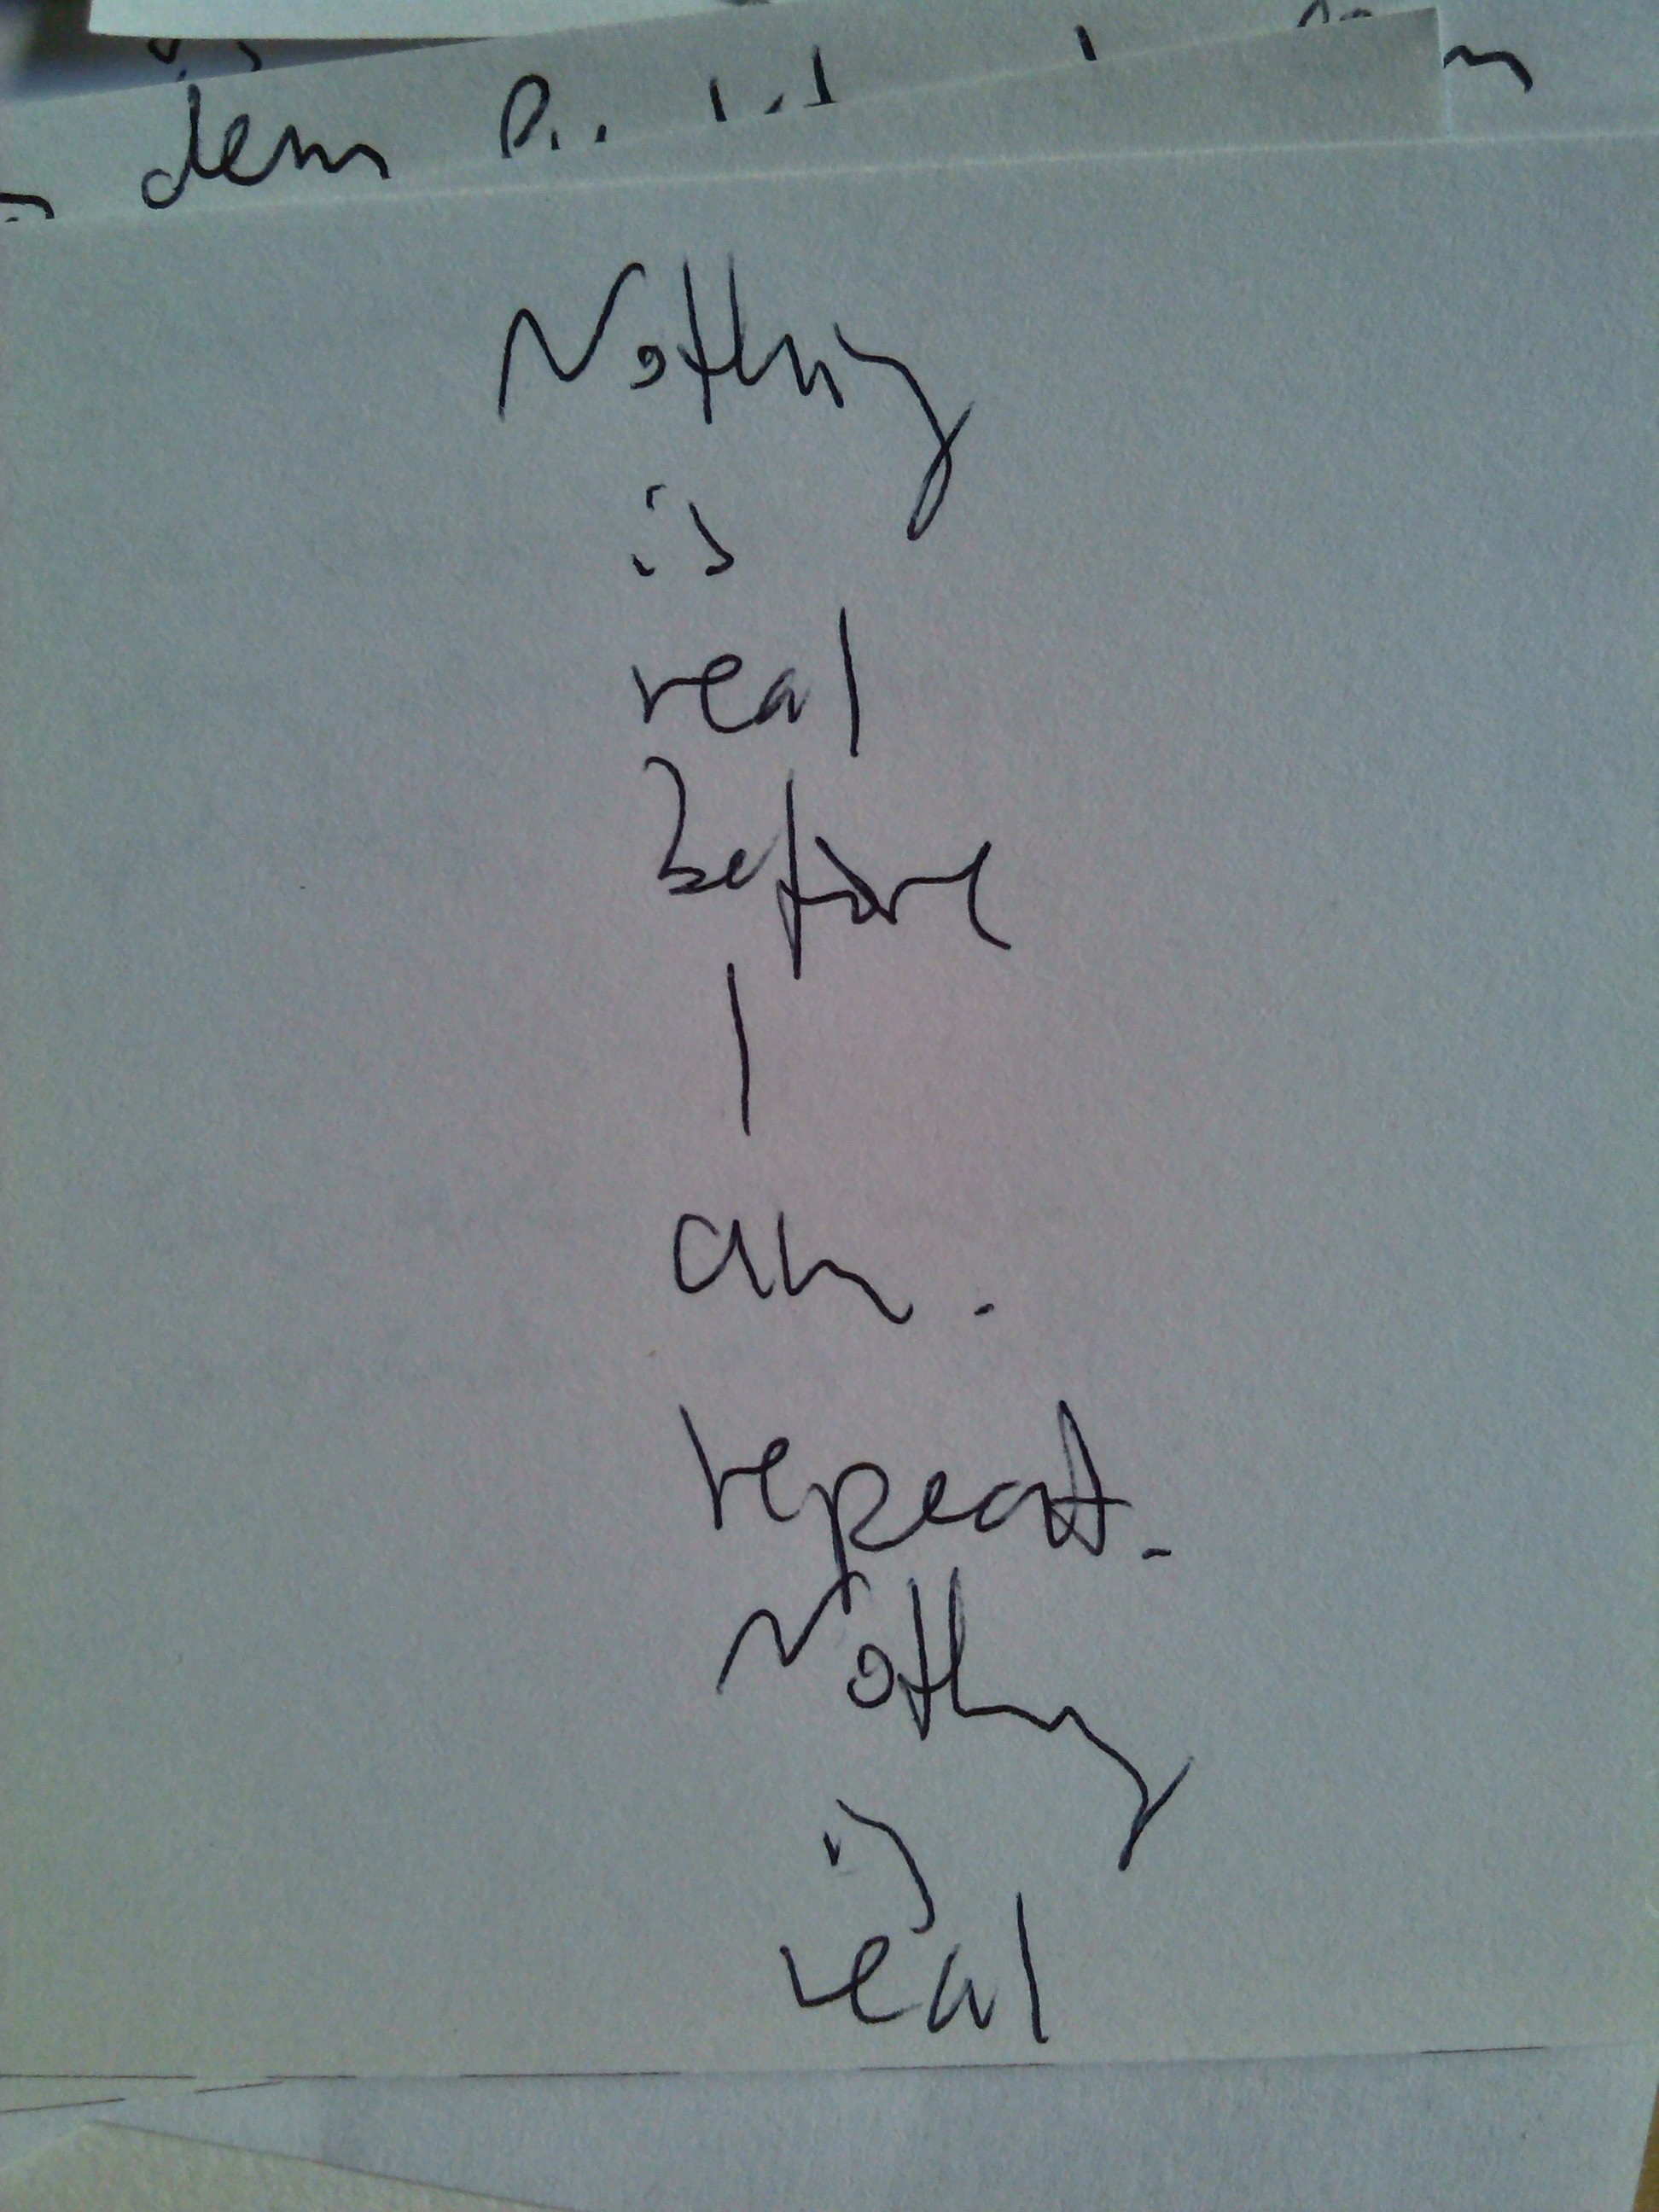 dem
Nothing
is
real
before
I
am.
repeat.
Nothing
is
real